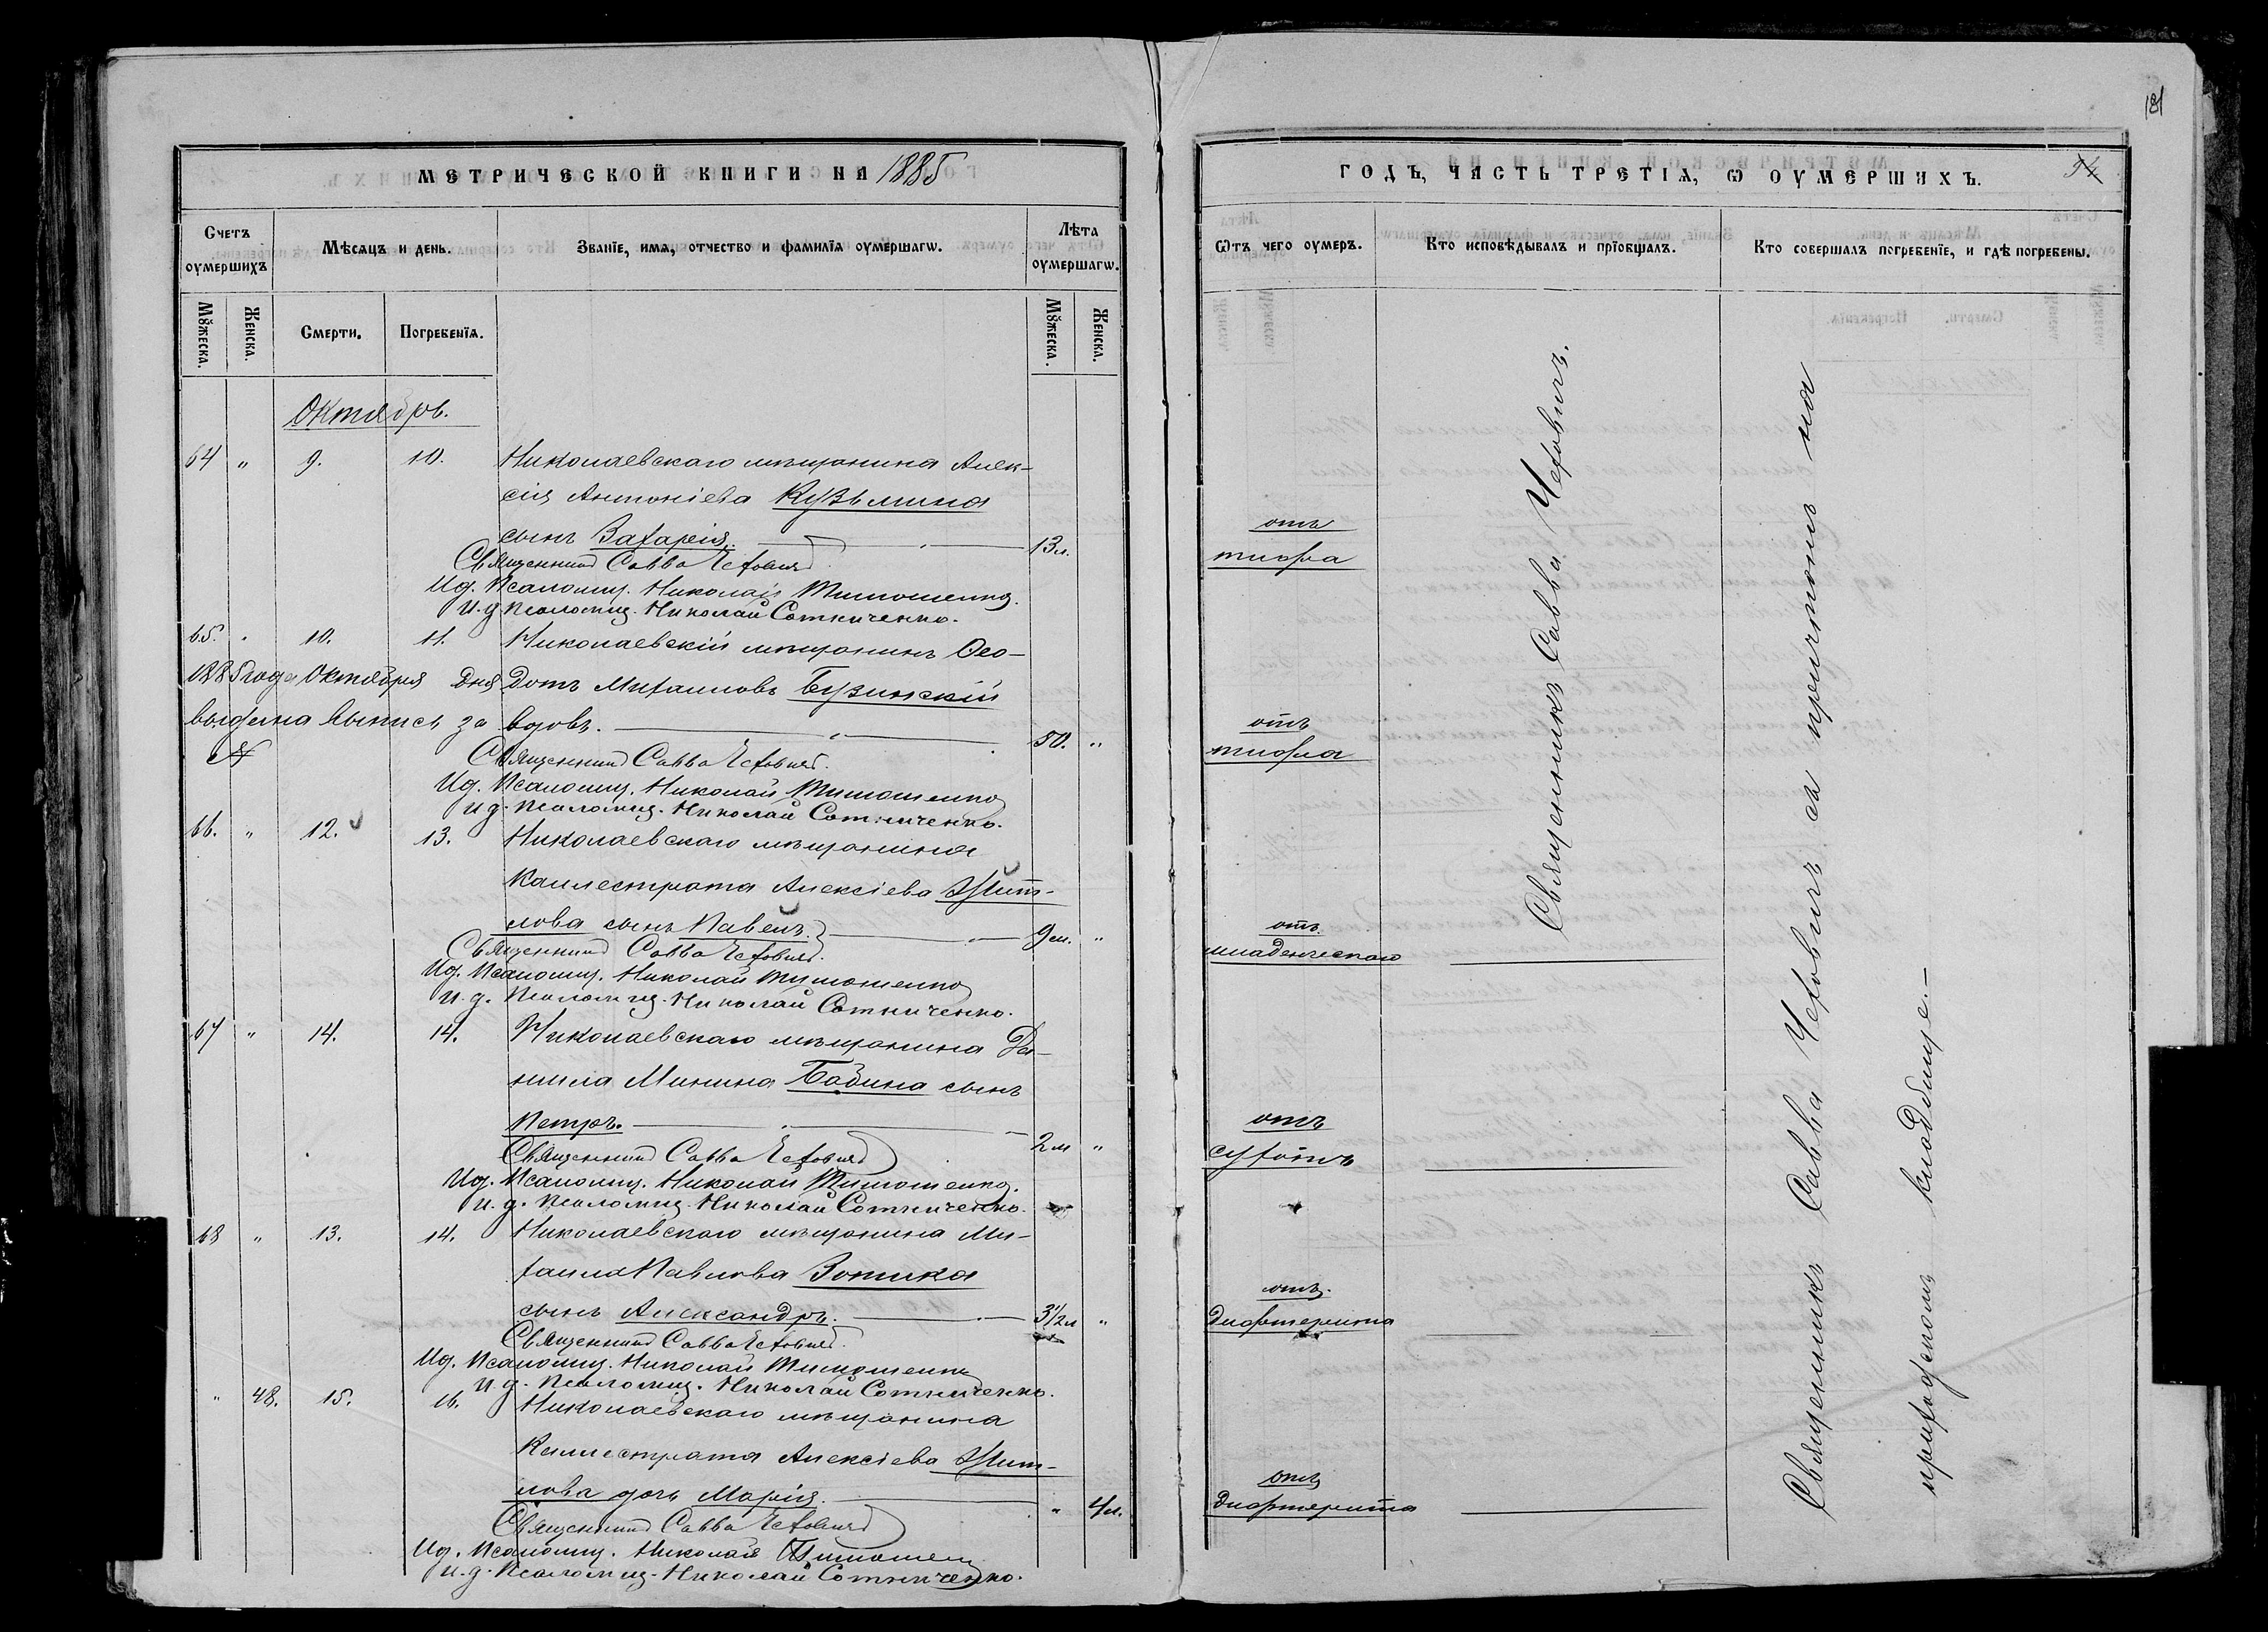 181
МЕТРИЧЕСКОЙ КНИГИ НА 1885
Счетъ оумершихъ
Мѣсяцъ и день.
Званїе, имя, отчество и фамилїя оумершагѡ.
Лѣта оумершагѡ.
Мꙋжеска.
Женска.
Смерти.
Погребенїя.
Мꙋжеска.
Женска.
Октябрь.
64 " 9. 10. Николаевскаго мѣщанина Алек-
сія Антоніева Кузьмина
сынъ Захарія. 13л.
Священникъ Савва Чеховичъ
И.д. Псаломщ. Николай Тимошенко.
и.д. Псаломщ. Николай Сотниченко.
65. " 10. 11. Николаевскій мѣщанинъ Ѳео-
дотъ Михаиловъ Бузинскій
1885 года Октября дня
выдана выпись за
№
вдовъ. 50. "
Священникъ Савва Чеховичъ.
И.д. Псаломщ. Николай Тимошенко
и.д. Псаломщ. Николай Сотниченко.
66. " 12. 13. Николаевскаго мѣщанина
Каллестрата Алексіева
лова сынъ Павелъ. 9м. "
Священникъ Савва Чеховичъ.
И.д. Псаломщ. Николай Тимошенко
и.д. Псаломщ. Николай Сотниченко.
67 " 14. 14. Николаевскаго мѣщанина Да-
ніила Минина Бабина сынъ
Петръ. 2м "
Священникъ Савва Чеховичъ
И.д. Псаломщ. Николай Тимошенко.
и.д. Псаломщ. Николай Сотниченко.
68 " 13. 14. Николаевскаго мѣщанина Ми-
хаила Павлова Зотика
сынъ Александръ. 3½л "
Священникъ Савва Чеховичъ.
И.д. Псаломщ. Николай Тимошенко
и.д. Псаломщ. Николай Сотниченко.
" 48. 15. 16. Николаевскаго мѣщанина
Каллестрата Алексіева
лова дочь Марія. " 4л.
Священникъ Савва Чеховичъ
И.д. Псаломщ. Николай Тимошенко
и.д. Псаломщ. Николай Сотниченко.
ГОДЪ, ЧАСТЬ ТРЕТІЯ, Ѡ ОУМЕРШИХЪ.
Ѿтъ чего оумеръ.
Кто исповѣдывалъ и прїобщалъ.
Кто совершалъ погребенїе, и гдѣ погребены.
отъ
тифа
отъ
тифа
отъ
младенческаго
отъ
сухотъ
отъ
дифтерита
отъ
дифтерита
Священникъ Савва Чеховичъ.
Священникъ Савва Чеховичъ съ причтомъ на
приходскомъ кладбище.